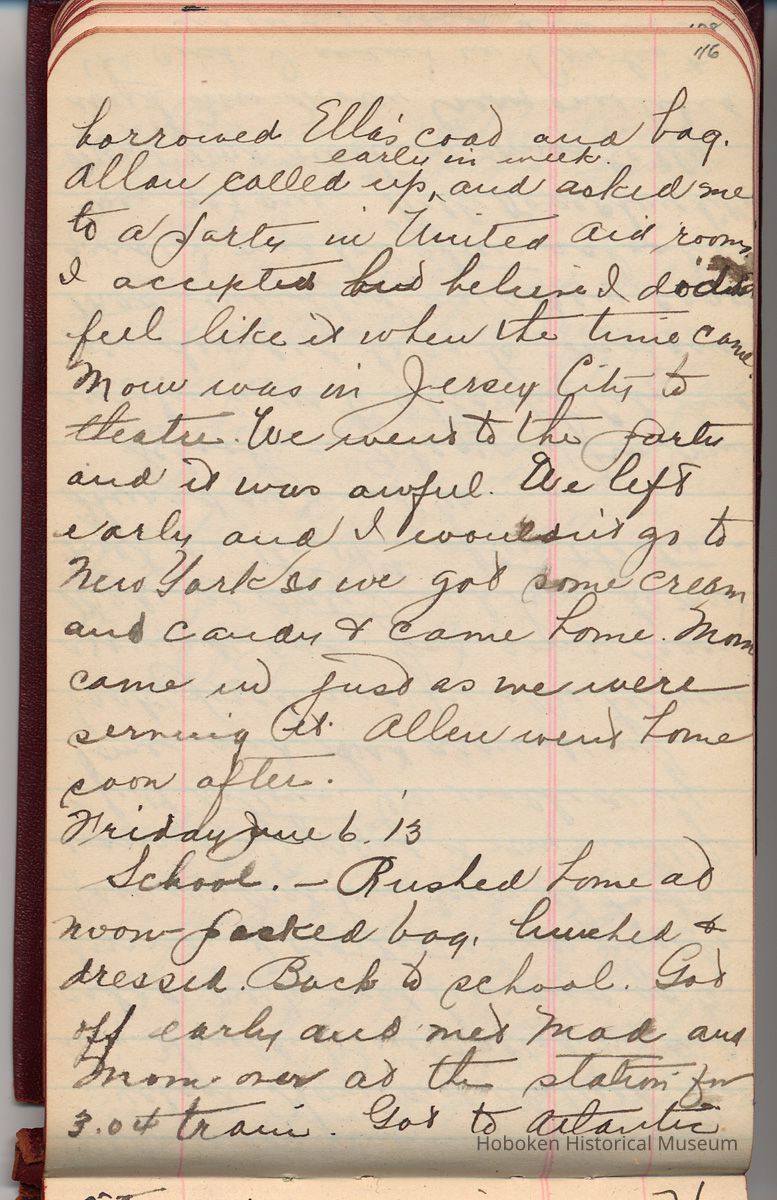 116
borrowed Ella's coat and bag.
early in week.
Allan called up, and asked me
to a party in United Aid rooms
I accepted but believe I didn't
feel like it when the time came.
Mom was in Jersey City to
theatre. We went to the party
and it was awful. We left
early and I wouldn't go to
New York so we got some cream
and candy & came home. Mom
came in just as we were
serving it. Allen went home
soon after.
Friday June 6. 13
School. – Rushed home at
noon – packed bag, lunched &
dressed. Back to school. Got
off early and met Mad and
Mom over at the station for
3.04 train. Got to Atlantic
Hoboken Historical Museum